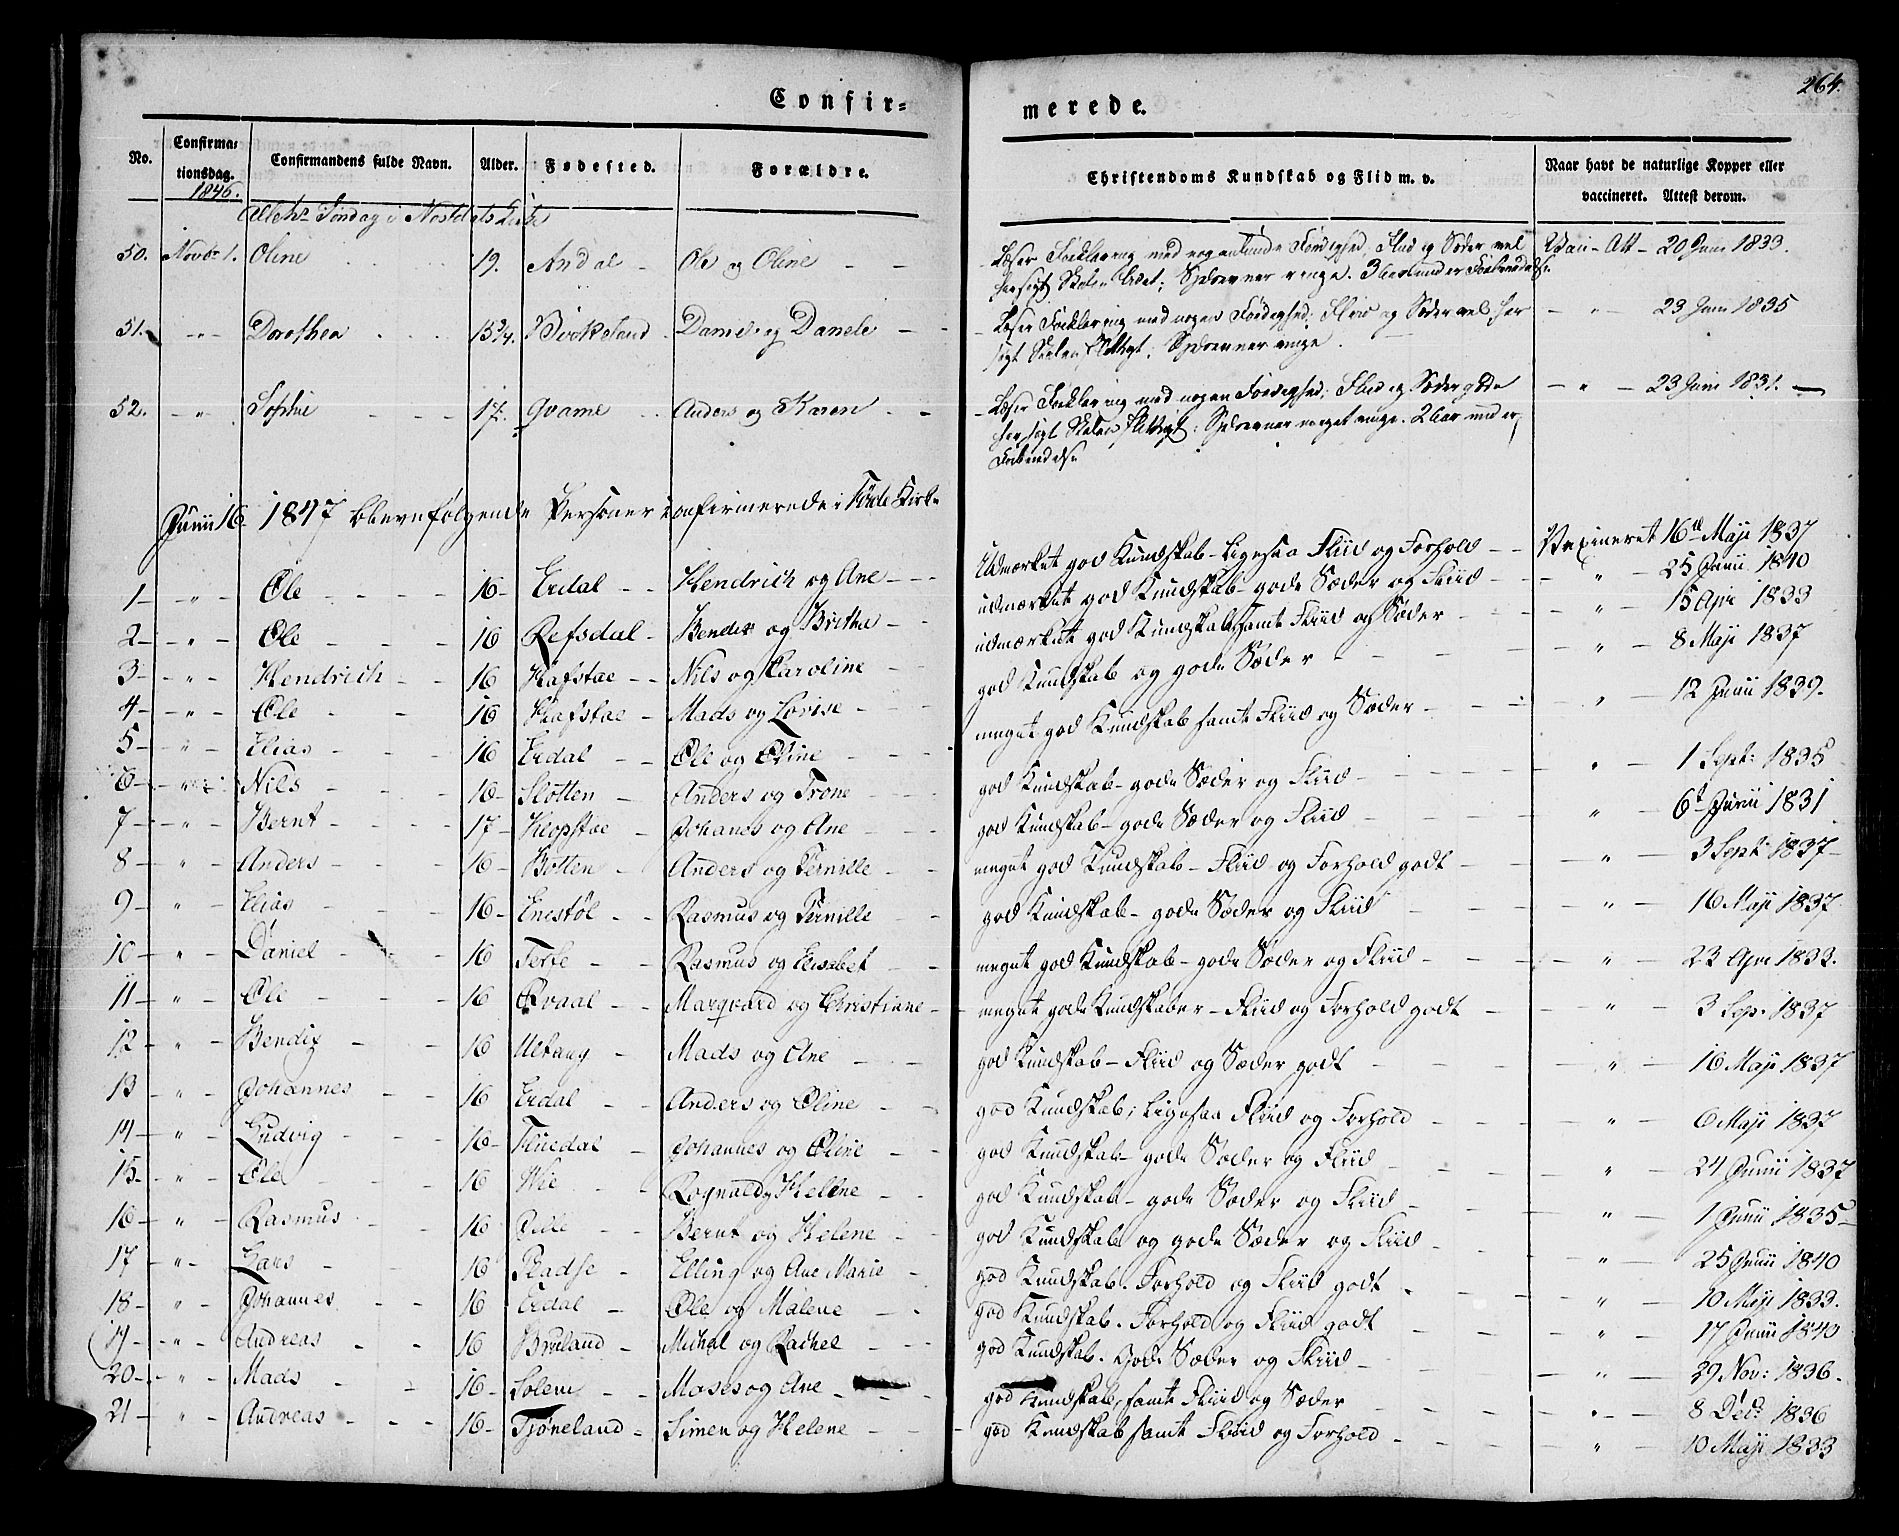 264.
Confir=
merede.
No. Confirma=tionsdag. Confirmandens fulde Navn. Alder. Fødested. Forældre. Christendoms Kundskab og Flid m. v. Naar havt de naturlige Kopper eller vaccineret. Attest derom.
1846.
Søndag i
50. Novbr 1. Oline 19. Andal Ole og Oline Læser Forklaring med nogenlunde Færdighed, Flid og Sæder vel Vacc. Att 20 Juni 1833.
51. " Dorothea 15¾. Birkeland Daniel og Danele Læser Forklaring med nogen Færdighed; Flid og Sæder vel " 23 Juni 1835
52. " Sophie 17. Qvame Anders og Karen Læser Forklaring med nogen Færdighed; Flid og Sæder gode " 23 Juni 1831.
Junii 16 1847 bleve følgende Personer confirmerede i Førde Kirke
1 " Ole 16 Erdal Hendrich og Ane Udmærket god Kundskab - Ligesaa Fliid og Forhold Vaxineret 16de Maji 1837
2 " Ole 16 Refsdal Bendix og Birthe udmærket god Kundskab - gode Sæder og Fliid " 25 Junii 1840
3 " Hendrich 16 Hafstae Nils og Karoline udmærket god Kundskab, samt Fliid og Sæder " 15 Apr 1833
4 " Ole 16 Hafstae Mads og Lovise god Kundskab og gode Sæder " 8 Maji 1837
5 " Elias 16 Erdal Ole og Oline meget god Kundskab samt Fliid og Sæder " 12 Junii 1839.
6 " Nils 16 Slotten Anders og Trone god Kundskab - gode Sæder og Fliid " 1 Sept: 1835
7 " Bernt 17 Klopstae Johanes og Ane god Kundskab - gode Sæder og Fliid " 6t Junii 1831
8 " Anders 16 Botten Anders og Pernille meget god Kundskab - Fliid og Forhold godt " 3 Sept 1837
9 " Elias 16 Enestøl Rasmus og Pernille god Kundskab - gode Sæder og Fliid " 16 Maji 1837
10 " Daniel 16 Terfe Rasmus og Elisabet meget god Kundskab - gode Sæder og Fliid " 22 Apr 1833.
11 " Ole 16 Qvaal Marqvard og Christiane meget gode Kundskaber - Fliid og Forhold godt " 3 Sep. 1837
12 " Bendix 16 Ulfang Mads og Ane god Kundskab - Fliid og Sæder godt " 16 Maji 1837
13 " Johannes 16 Erdal Anders og Oline god Kundskab; Ligesaa Fliid og Forhold " 6 Maji 1837
14 " Ludvig 16 Flüedal Johannes og Oline god Kundskab - gode Sæder og Fliid " 24 Junii 1837
15 " Ole 16 Wie Rognald og Helene god Kundskab - gode Sæder og Fliid " 1 Junii 1835
16 " Rasmus 16 Bernt og Helene god Kundskab og gode Sæder og Fliid " 25 Junii 1840
17 " Lars 16 Elling og Ane Marie god Kundskab. Forhold og Fliid godt " 10 Maji 1833.
18 " Johannes 16 Erdal Ole og Malene god Kundskab. Forhold og Fliid godt " 17 Junii 1840
19 " Andreas 16 Bruland Michel og Rachel god Kundskab. Gode Sæder og Fliid " 29 Nov: 1836.
20 " Mads 16 Solem Moses og Ane god Kundskab, samt Fliid og Sæder " 8 Dec: 1836
21 " Andreas 16 Tjøneland Simen og Helene god Kundskab samt Fliid og Forhold " 10 Maji 1833